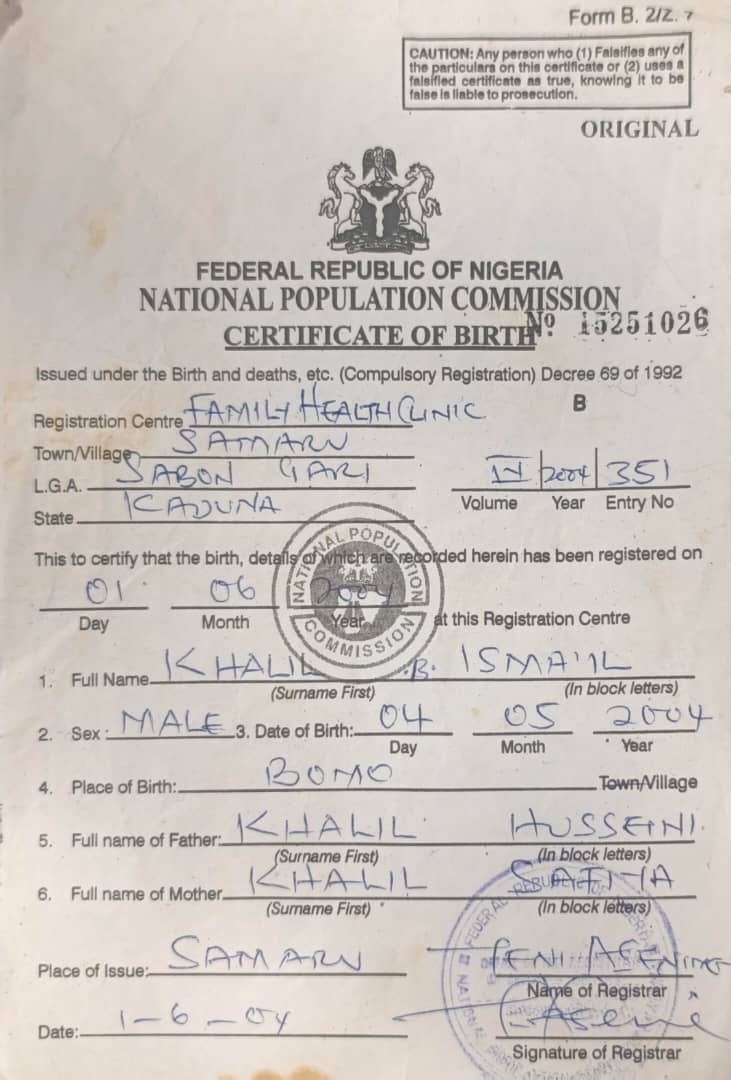 Form B. 2/Z. 7
CAUTION: Any person who (1) Falsifies any of
the particulars on this certificate or (2) uses a
falsified certificate as true, knowing it to be
false is liable to prosecution.
ORIGINAL
FEDERAL REPUBLIC OF NIGERIA
NATIONAL POPULATION COMMISSION
CERTIFICATE OF BIRTH No 15251026
Issued under the Birth and deaths, etc. (Compulsory Registration) Decree 69 of 1992
Registration Centre FAMILY HEALTH CLINIC B
Town/Village SAMARU
L.G.A. SABON GARI 2004 351
Volume Year Entry No
State KADUNA
NATIONAL POPULATION COMMISSION
This to certify that the birth, details of which are recorded herein has been registered on
01 06 2004
Day Month Year at this Registration Centre
1. Full Name KHALIL .B. ISMA'IL
(Surname First) (In block letters)
2. Sex: MALE 3. Date of Birth: 04 05 2004
Day Month Year
4. Place of Birth: BOMO Town/Village
5. Full name of Father: KHALIL HUSSEINI.
(Surname First) (In block letters)
6. Full name of Mother KHALIL SAFIYA
(Surname First) (In block letters)
Place of Issue: SAMARU
Name of Registrar
Date: 1-6-04
Signature of Registrar